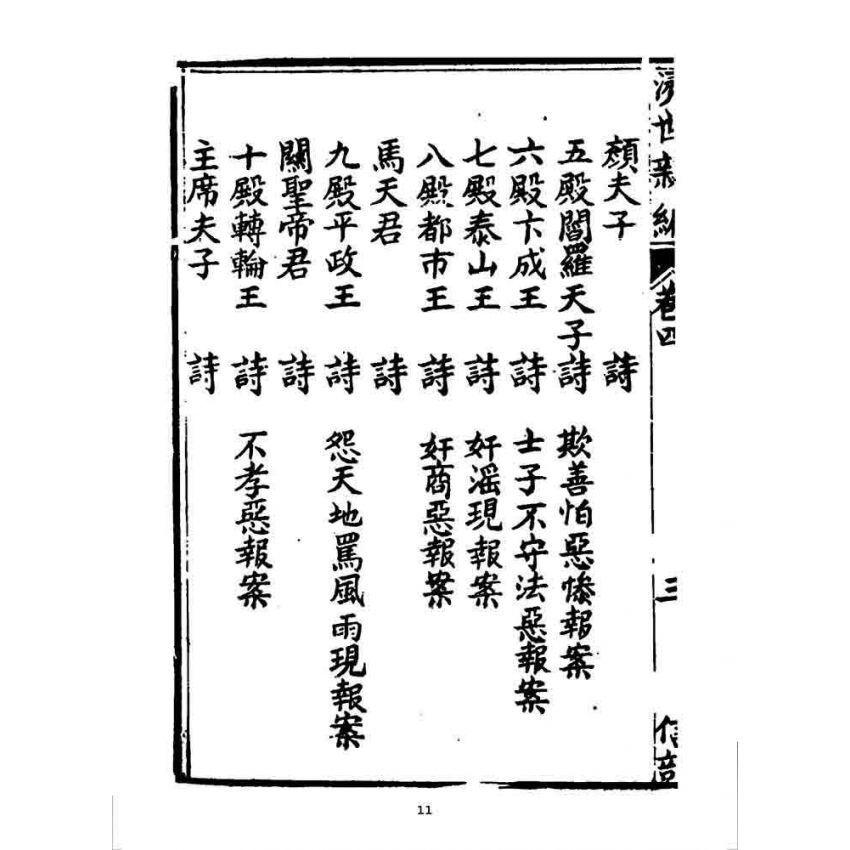 世新編 卷四 三
顏夫子 詩
五殿閻羅天子詩 欺善怕惡慘報案
六殿卞成王 詩 士子不守法惡報案
七殿泰山王 詩 奸滛現報案
八殿都市王 詩 奸商惡報案
馬天君 詩
九殿平政王 詩 怨天地罵風雨現報案
關聖帝君 詩
十殿轉輪王 詩 不孝惡報案
主席夫子 詩
11